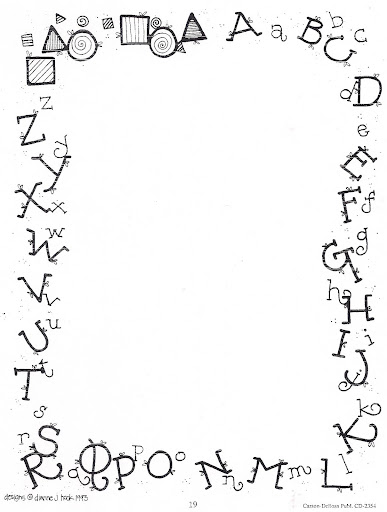 A a B b C c
D d
E e
F f
G g
H h
I i
J j
K k
L l
M m
N n
O o
P p
Q q
R r
S s
T t
U u
V v
W w
X x
Y y
Z z
designs © dianne J. hook 1993
19
Carson-Dellosa Publ. CD-2354